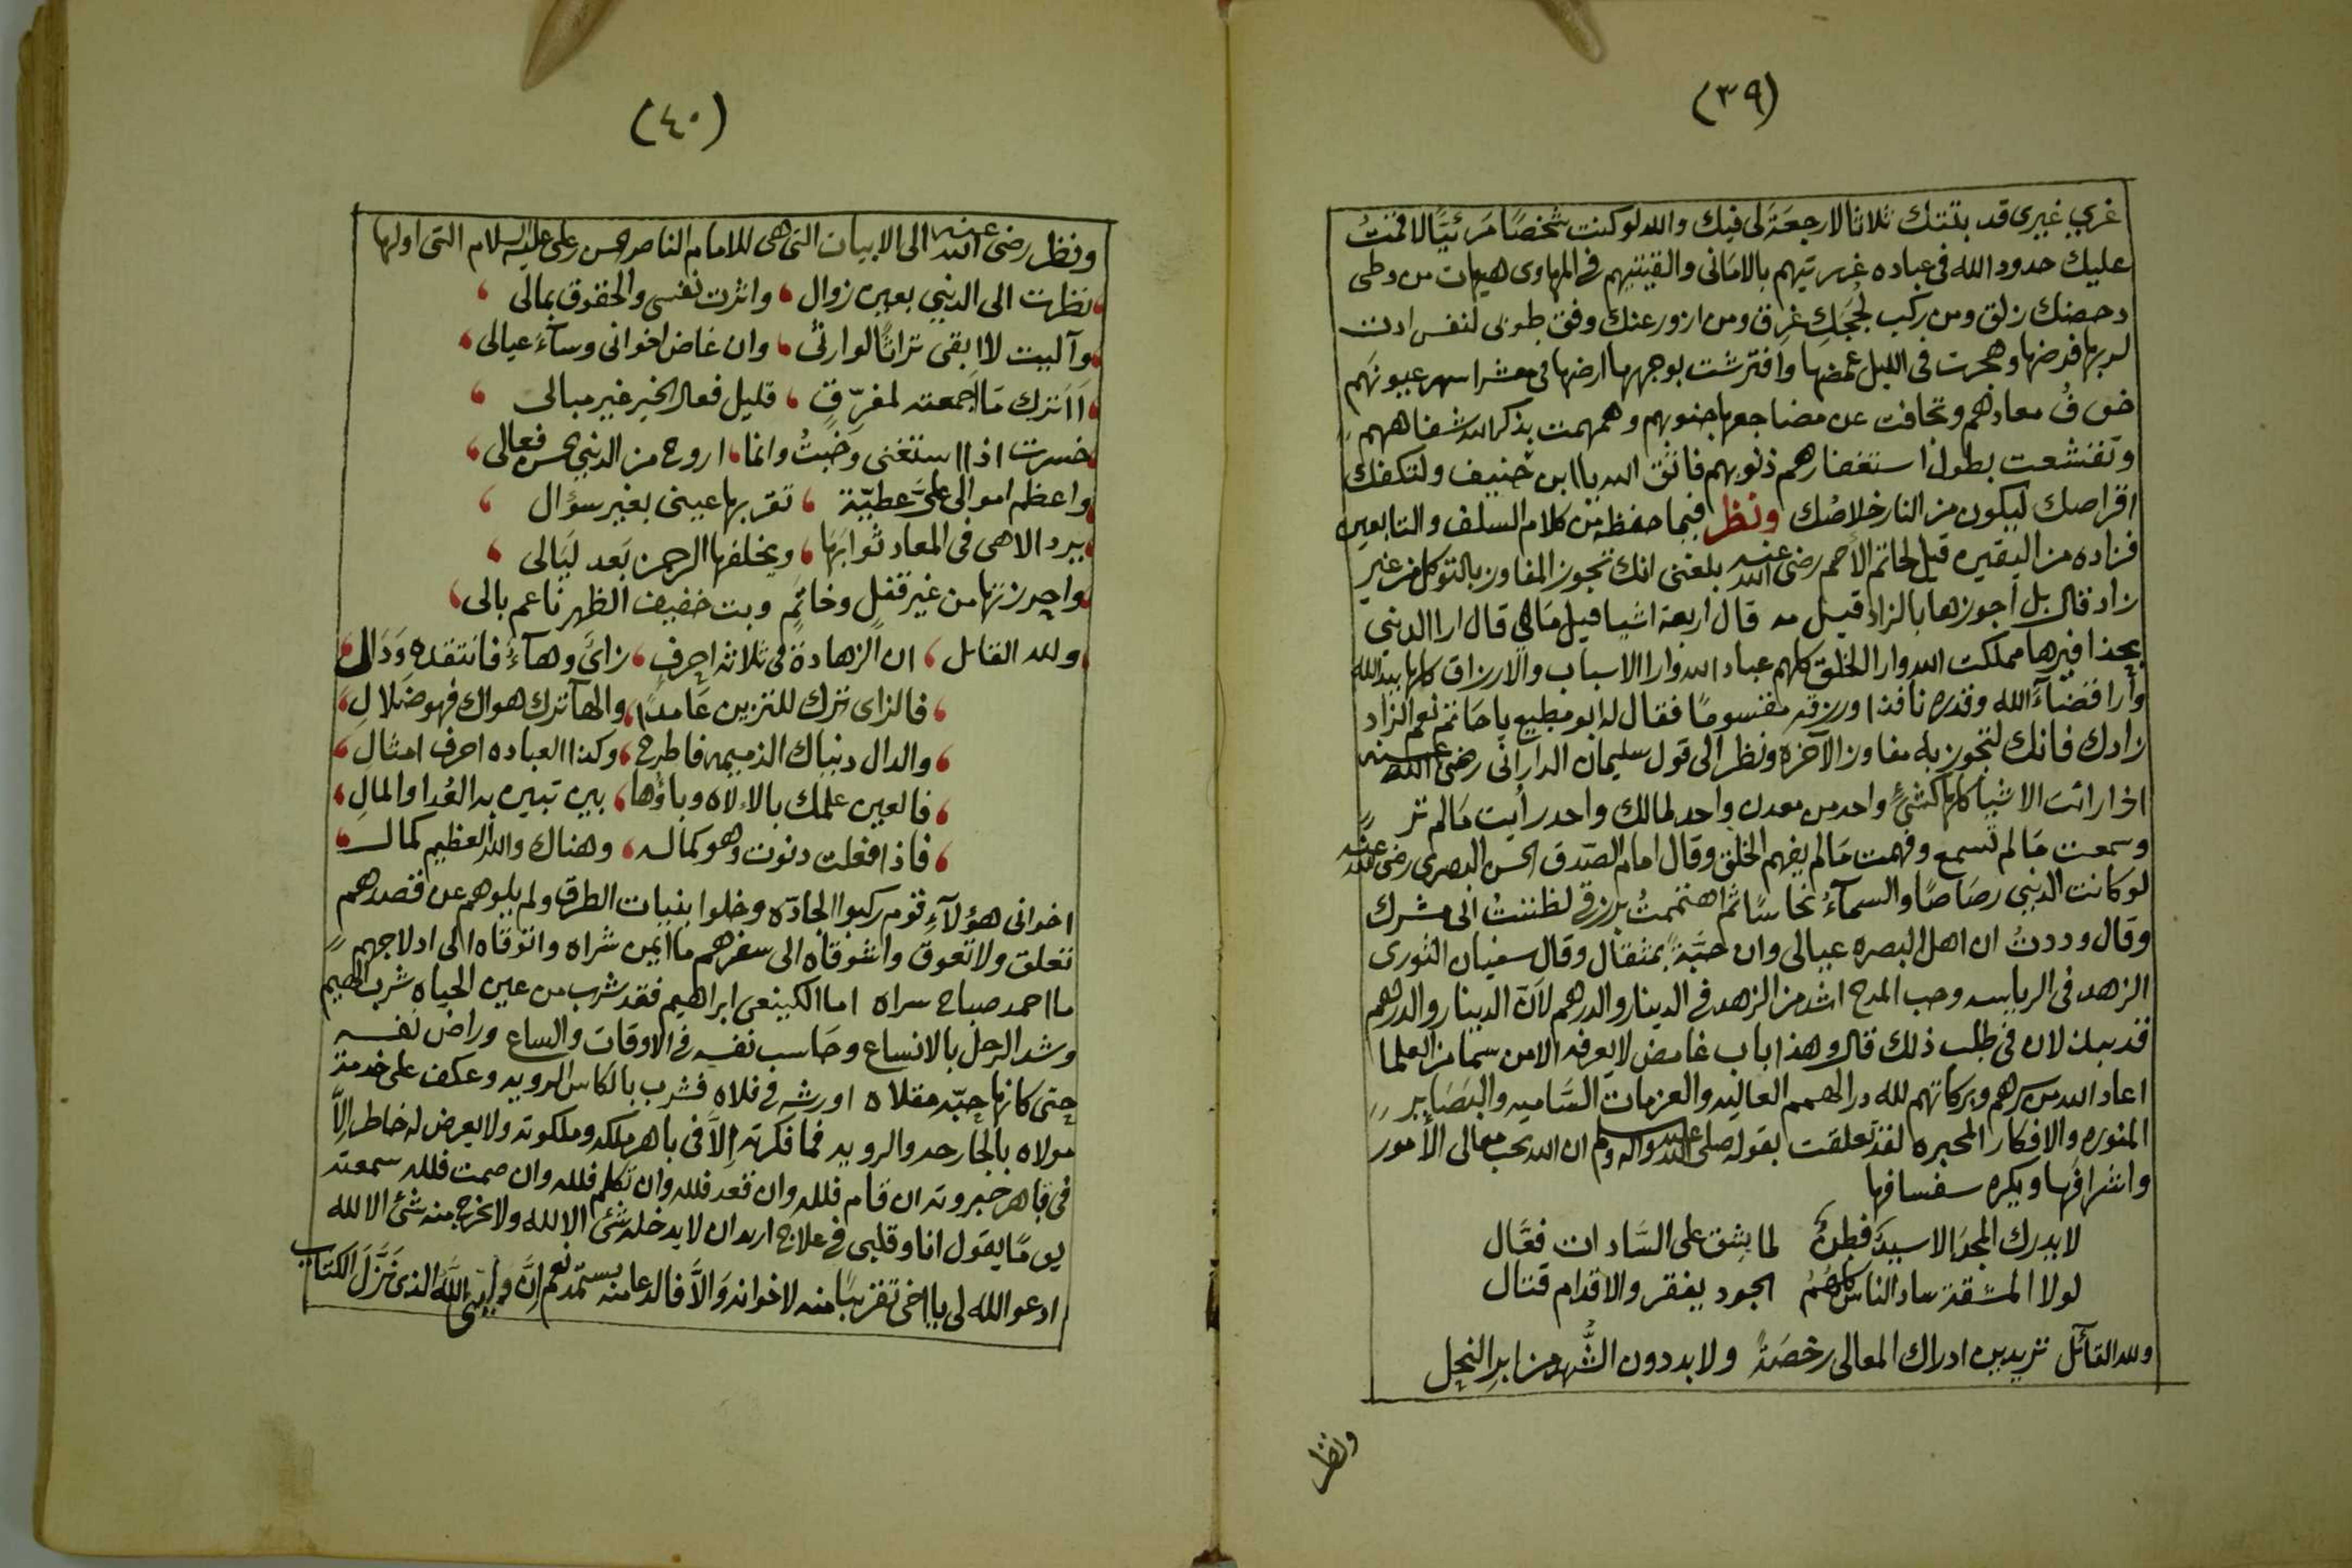 (٣٩)
غري غيري قد بتتك ثلاثا لا رجعة لى فيك والله لو كنت شخصًا مرئيًا لاقمتُ
عليك حدود الله فى عباده غررتيهم بالامانى والقيتيهم فى المهاوى هيهات من وطى
دحضك زلق ومن ركب لججك غرق ومن ازور عنك وفق طوبى لنفس ادت
لربها فرضها وهجرت فى الليل غمضها وافترشت بوجهها ارضها فى معشر اسهر عيونهم
خوفُ معادهم وتجافت عن مضاجعها جنوبهم وهمهمت بذكر الله شفاههم
وتقشعت بطول استغفارهم ذنوبهم فاتق الله يا ابن حنيف ولتكفك
اقراصك ليكون من النار خلاصك ونظر فيما حفظه من كلام السلف والتابعين
فزاده من اليقين قيل لحاتم الأصم رضى الله عنه بلغنى انك تجوز المفاوز بالتوكل من غير
زاد فقال بل اجوزها بالزاد قيل مه قال اربعة اشيا قيل ما هى قال ارا الدنيى
بحذافيرها مملكت الله وارا الخلق كلهم عباد الله وارا الاسباب والارزاق كلها بيد الله
وأرا قضآء الله وقدره نافذا ورزقه مقسومًا فقال له ابو مطيع يا حاتم نعم الزاد
زادك فانك لتجوز به مفاوز الآخره ونظر الى قول سليمان الدارانى رضى الله عنه
اذا رائت الاشيا كلها كشئٍ واحد من معدن واحد لمالك واحد رأيت مالم تر
وسمعت مالم تسمع وفهمت مالم يفهم الخلق وقال امام الصّدق الحسن البصرى رضى الله عنه
لو كانت الدنيى رصاصًا والسمآءُ نحاسًا ثم اهتممتُ برزقى لظننتُ انى مشرك
وقال وددتُ ان اهل البصره عيالى وان حبَّةً بمثقال وقال سفيان الثورى
الزهد فى الرياسه وحب المدح اشد من الزهد فى الدينار والدرهم لأنّ الدينار والدرهم
قد يبذلان فى طلب ذلك قال وهذا باب غامض لا يعرفه الا من سما من العلما
اعاد الله من سرهم وبركاتهم لله در الهمم العاليه والعزمات السّاميه والبصاير
المنوره والافكار المحبره لقد تعلقت بقوله صلى الله عليه واله وسلم ان الله يحب معالى الأمور
واشرافها ويكره سفسافها
لا يدرك المجد الا سيدٌ فطنٌ لما يشق على السَّادات فعَّال
لولا المشقة ساد الناس كلهُمُ الجود يفقر والاقدام قتال
ولله القآئل تريدين ادراك المعالى رخصَةً ولا بد دون الشُّهد من ابر النحل
ونظر
(٤٠)
ونظر رضى الله عنه الى الابيات التى هى للامام الناصر الحسن بن على عليه السلام التى اولها
نظرت الى الدنيى بعين زوال واثرت نفسى والحقوق بمالى
وآليت لا ابقى تراثًا لوارثٍ وان غاض اخوانى وسآء عيالى
أاترك ما اجمعته لمفرّقٍ قليل فعال الخير غير مبالى
خسرت اذا استغنى وخبتُ وانما اروح من الدنيى بحسن فعالى
واعظم اموالى علىَّ عطيّة تقر بها عينى بغير سؤال
يرد الاهى فى المعاد ثوابها ويخلفها الرحمن بَعد ليَالى
واحرزتها من غير قفلٍ وخاتمٍ وبت خفيف الظهر ناعم بالى
ولله القائل ان الزهادة فى ثلاثة احرفٍ زاىٌ وهآءٌ فانتقده وَدَال
فالزاى ترك للتزين عَامدًا والهآ ترك هواك فهو ضلالِ
والدال دنياك الذميمه فاطرح وكذا العباده احرف امثال
فالعين علمك بالاءلاه وباؤها بين تبين به العُدا والمالِ
فاذا فعلت دنوت وهو كماله وهناك والله العظيم كمال
اخوانى هؤلآءِ قوم ركبوا الجادّه وخلوا بنيات الطرق ولم يلوهم عن قصدهم
تعلق ولا تعوق واشوقاه الى سفرهم ما ايمن شراه واتوقاه الى ادلاجهم
ما احمد صباح سراه اما الكينعى ابراهيم فقد شرب من عين الحياه شرب الهيم
وشد الرحل بالانساع وحاسب نفسه فى الاوقات والساع وراض نفسه
حتى كانها حبّه مقلاه اوريشه فى فلاه فشرب بالكاس الرويه وعكف على خدمة
مولاه بالجارحه والرويه فما فكرته إلاَّ فى باهر ملكه وملكوته ولا يعرض له خاطر إلاَّ
فى قاهر جبروته ان قام فلله وان قعد فلله وان تكلم فلله وان صمت فلله سمعته
يومًا يقول انا وقلبى فى علاج اريد ان لا يدخله شئ الا لله ولا يخرج منه شئ الا لله
ادعو الله لى يا اخى تقربًا منه لاخوانه وَالاَّ فالدعا منه يستمد نعم إنَّ وليّى الله الذى نَزَّلَ الكتاب